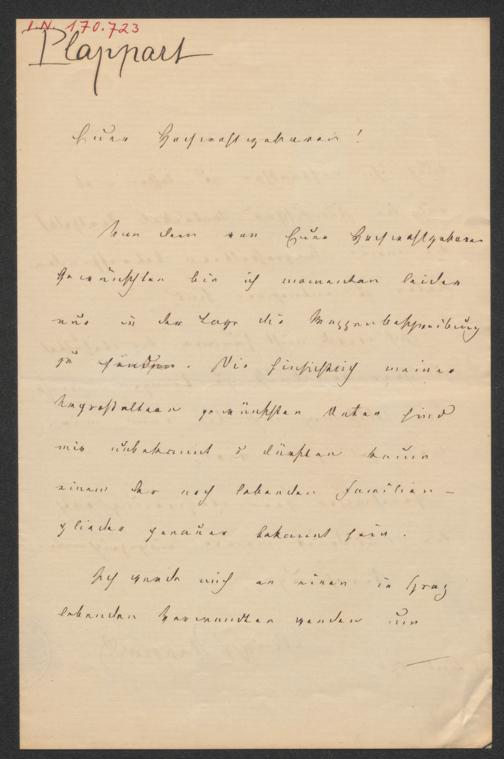 I.N. 170.723
Plappart
Euer Hochwohlgeboren!
Von dem von Euer Hochwohlgeboren
Gewünschten bin ich momentan leider
nur in der Lage die Wappenbeschreibung
zu senden. Die hinsichtlich meiner
Urgroßeltern gewünschten Daten sind
mir unbekannt & dürften kaum
einem der noch lebenden Familien-
glieder genauer bekannt sein.
Ich werde mich an einen in Graz
lebenden Verwandten wenden um